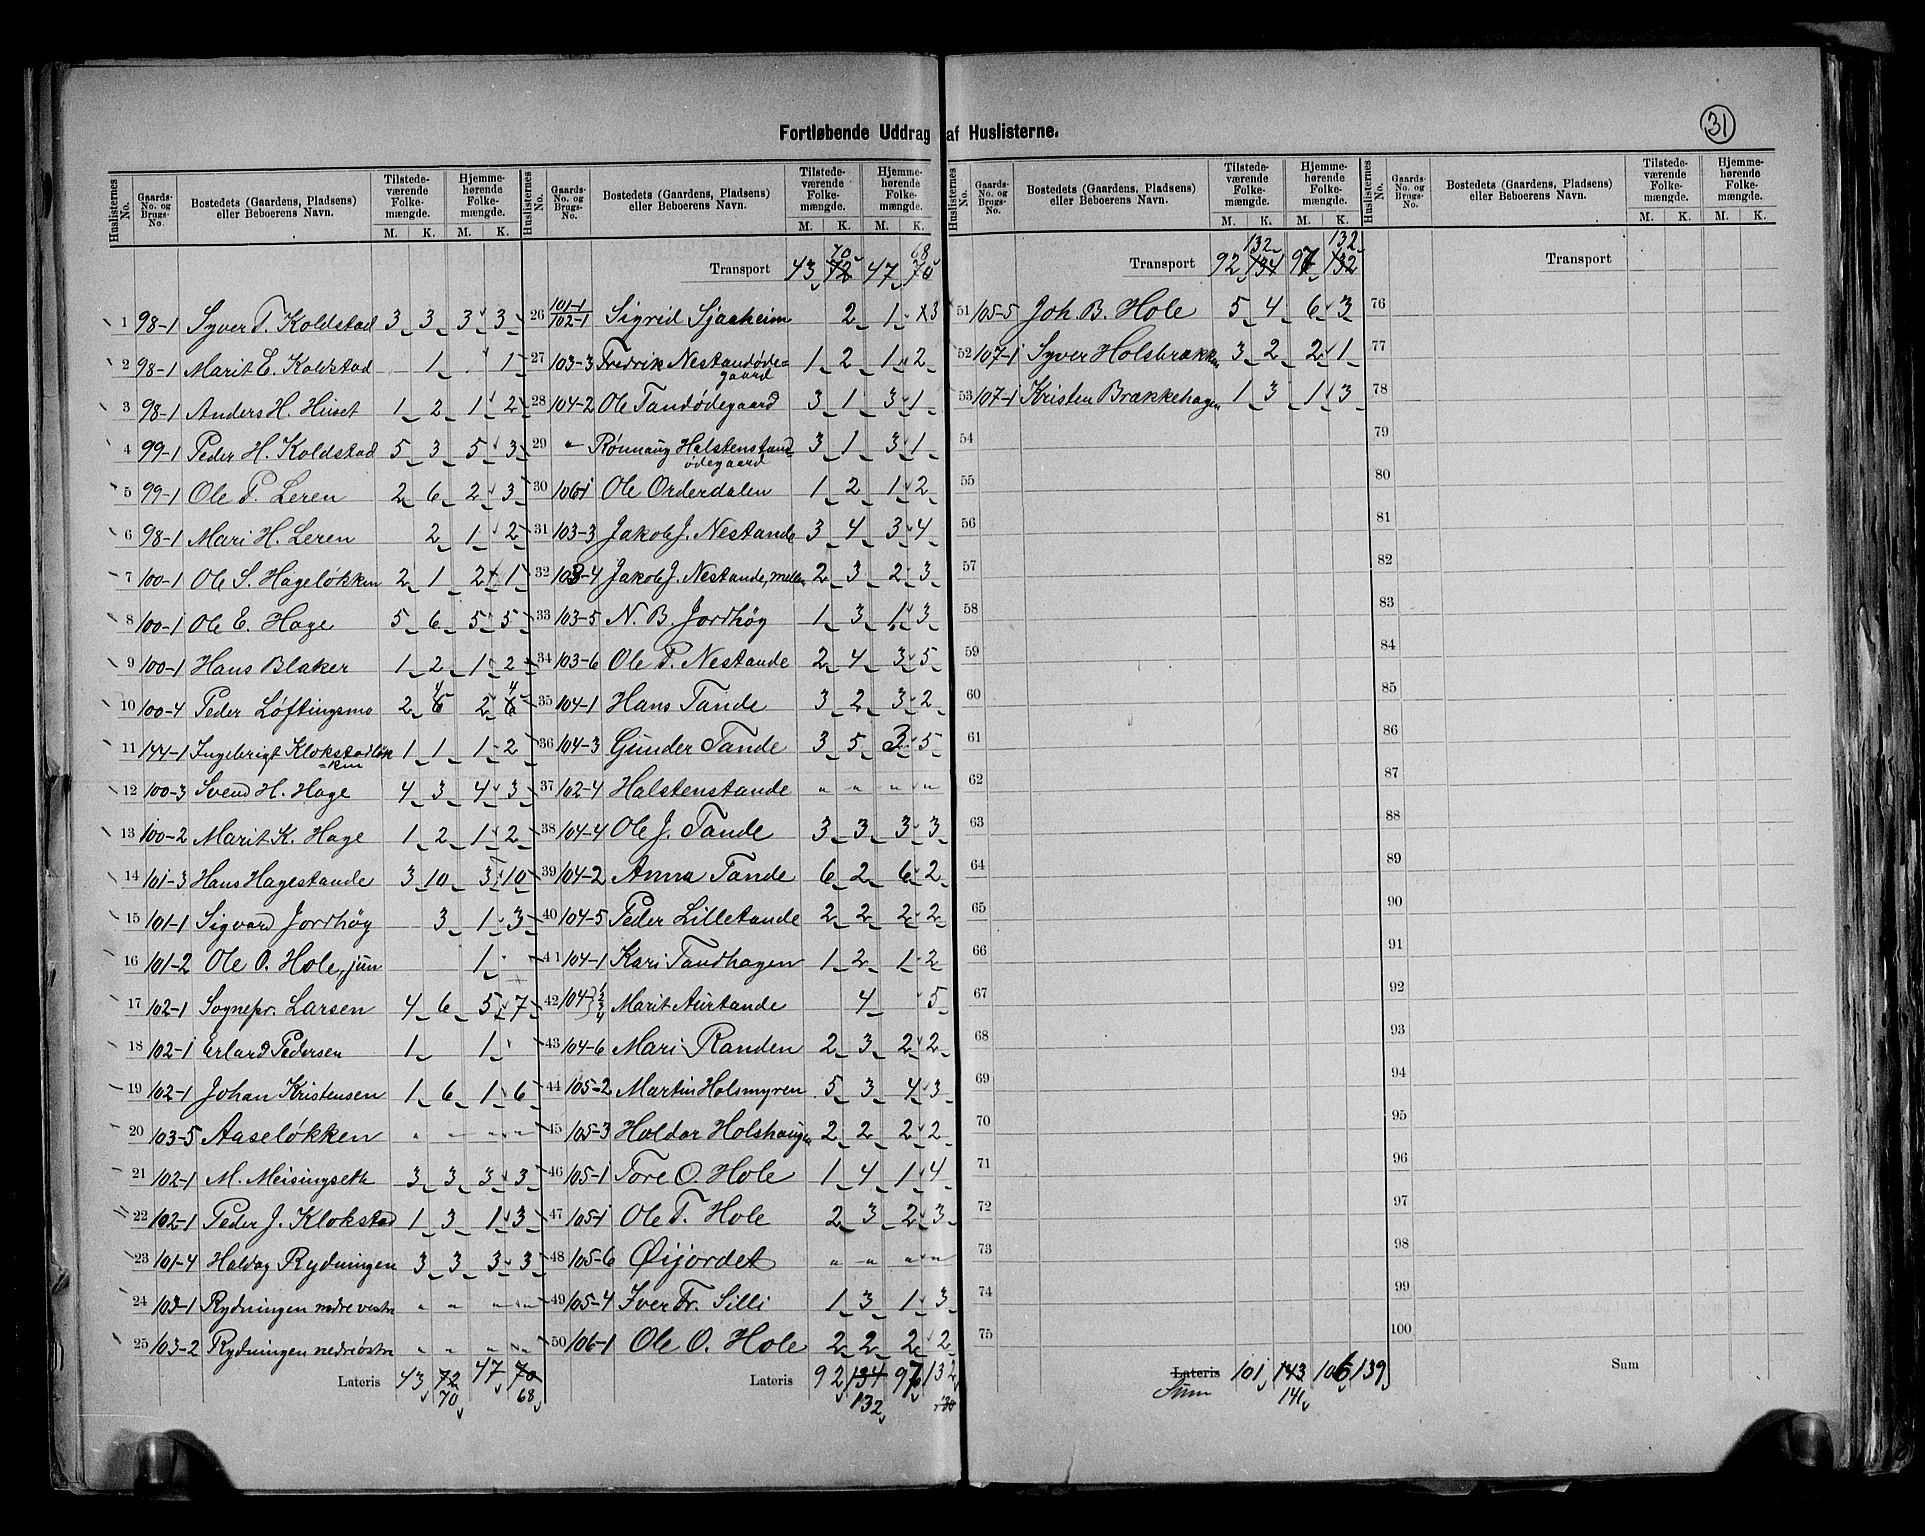 Fortløbende Uddrag af Huslisterne.
31
Huslisternes No. Gaards-No. og Brugs-No. Bostedets (Gaardens, Pladsens) eller Beboerens Navn. Tilstedeværende Folkemængde. Hjemmehørende Folkemængde.
M. K. M. K.
1 98-1 Syver T. Koldstad 3 3 3 3
2 98-1 Marit E. Koldstad 1 1
3 98-1 Anders H. Huset 1 2 1 2
4 99-1 Peder H. Koldstad 5 3 5 3
5 99-1 Ole P. Leren 2 6 2 3
6 98-1 Mari H. Leren 2 1 2
7 100-1 Ole S. Hageløkken 2 1 2 1
8 100-1 Ole E. Hage 5 6 5 5
9 100-1 Hans Blaker 1 2 1 2
10 100-4 Peder Løftingsmo 2 4 2 4
11 144-1 Ingebrigt Klokstadløkken 1 1 1 2
12 100-3 Svend H. Hage 4 3 4 3
13 100-2 Marit K. Hage 1 2 1 2
14 101-3 Hans Hagestande 3 10 3 10
15 101-1 Sigvard Jordhøy 3 1 3
16 101-2 Ole O. Hole, jun 1
17 102-1 Sognepr. Larsen 4 6 5 7
18 102-1 Erland Pedersen 1 1
19 102-1 Johan Kristensen 1 6 1 6
20 103-5 Aaseløkken " " " "
21 102-1 M. Meisingseth 3 3 3 3
22 102-1 Peder J. Klokstad 1 3 1 3
23 101-4 Haldog Rydningen 3 3 3 3
24 103-1 Rydningen nedre vestre " " " "
25 103-2 Rydningen nedre østre " " " "
Lateris 43 72 47 70
70 68
Huslisternes No. Gaards-No. og Brugs-No. Bostedets (Gaardens, Pladsens) eller Beboerens Navn. Tilstedeværende Folkemængde. Hjemmehørende Folkemængde.
M. K. M. K.
70 68
Transport 43 72 47 70
26 101-1 102-1 Sigrid Sjaaheim 2 1 3
27 103-3 Fredrik Nestandødegaard 1 2 1 2
28 104-2 Ole Tandødegaard 3 1 3 1
29 " Rønnaug Halstenstandødegaard 3 1 3 1
30 106-1 Ole Orderdalen 1 2 1 2
31 103-3 Jakob J. Nestande 3 4 3 4
32 103-4 Jakob J. Nestande, mellem 2 3 2 3
33 103-5 N. B. Jordhøy 1 3 1 3
34 103-6 Ole P. Nestande 2 4 3 5
35 104-1 Hans Tande 3 2 3 2
36 104-3 Gunder Tande 3 5 3 5
37 102-4 Halstenstande " " " "
38 104-4 Ole J. Tande 3 3 3 3
39 104-2 Anna Tande 6 2 6 2
40 104-5 Peder Lilletande 2 2 2 2
41 104-1 Kari Tandhagen 1 2 1 2
42 104 Marit Aurtande 4 5
43 104-6 Mari Randen 2 3 2 2
44 105-2 Martin Holsmyren 5 3 4 3
45 105-3 Haldor Holshaugen 2 2 2 2
46 105-1 Tore O. Hole 1 4 1 4
47 105-1 Ole T. Hole 2 3 2 3
48 105-6 Øijordet " " " "
49 105-4 Iver Fr. Silli 1 3 1 3
50 106-1 Ole O. Hole 2 2 2 2
Lateris 92 134 97 132
132
Huslisternes No. Gaards-No. og Brugs-No. Bostedets (Gaardens, Pladsens) eller Beboerens Navn. Tilstedeværende Folkemængde. Hjemmehørende Folkemængde.
M. K. M. K.
132 132
Transport 92 134 97 132
51 105-5 Joh B. Hole 5 4 6 3
52 107-1 Syver Holsbrækken 3 2 2 1
53 107-1 Kristen Brækkehagen 1 3 1 3
54
55
56
57
58
59
60
61
62
63
64
65
66
67
68
69
70
71
72
73
74
75
Lateris 101 143 106 139
Sum 141
Huslisternes No. Gaards-No. og Brugs-No. Bostedets (Gaardens, Pladsens) eller Beboerens Navn. Tilstedeværende Folkemængde. Hjemmehørende Folkemængde.
M. K. M. K.
Transport
76
77
78
79
80
81
82
83
84
85
86
87
88
89
90
91
92
93
94
95
96
97
98
99
100
Sum